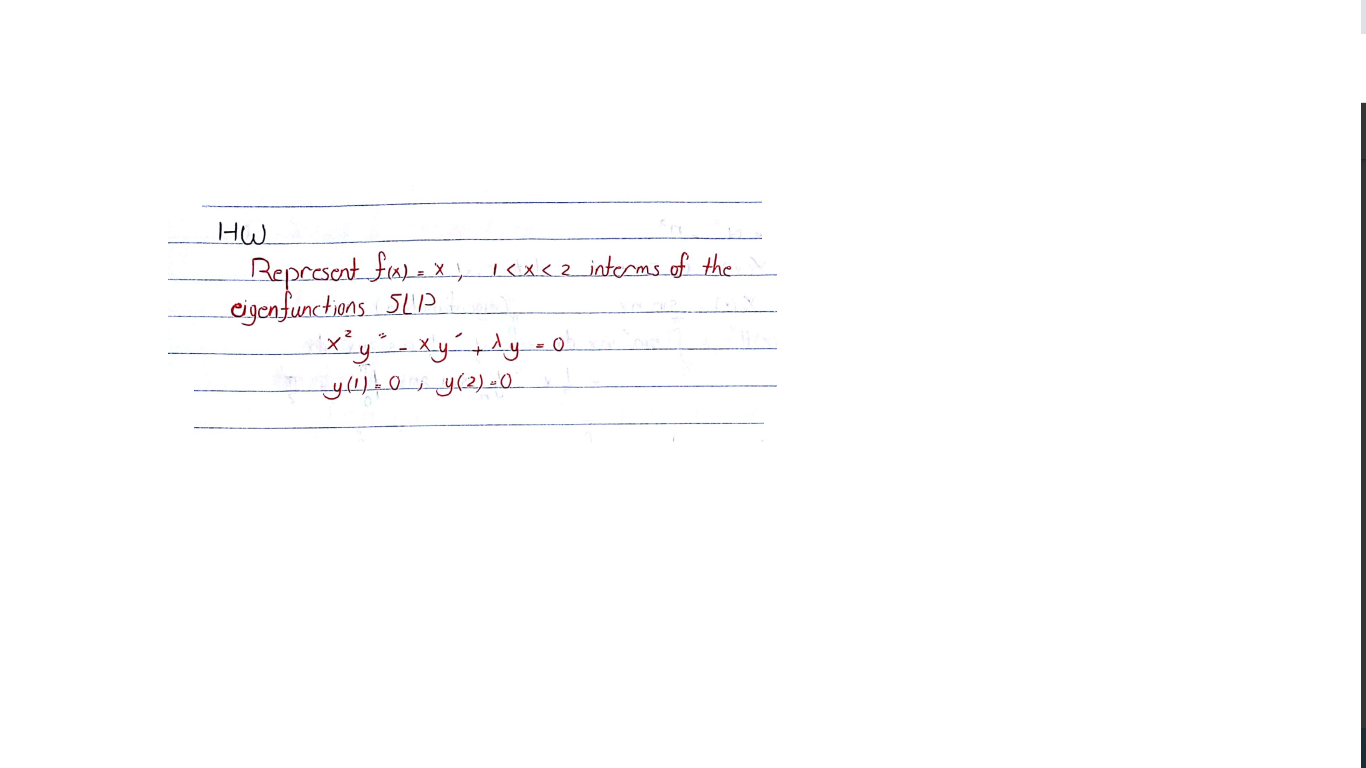 HW
Represent f(x) = x, 1 < x < 2 interms of the
eigenfunctions SLP
x² y″ - xy′ + λy = 0
y(1) = 0 , y(2) = 0